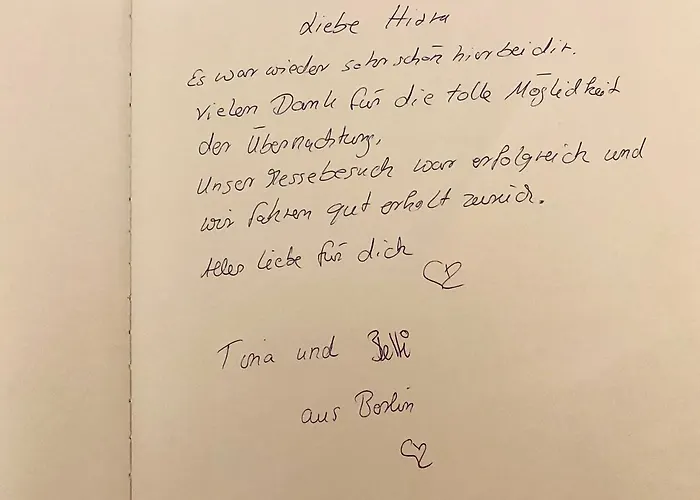 Liebe Hidra
Es war wieder sehr schön hier bei dir.
Vielen Dank für die tolle Möglichkeit
der Übernachtung.
Unser Messebesuch war erfolgreich und
wir fahren gut erholt zurück.
Alles Liebe für dich
Tina und
aus Berlin